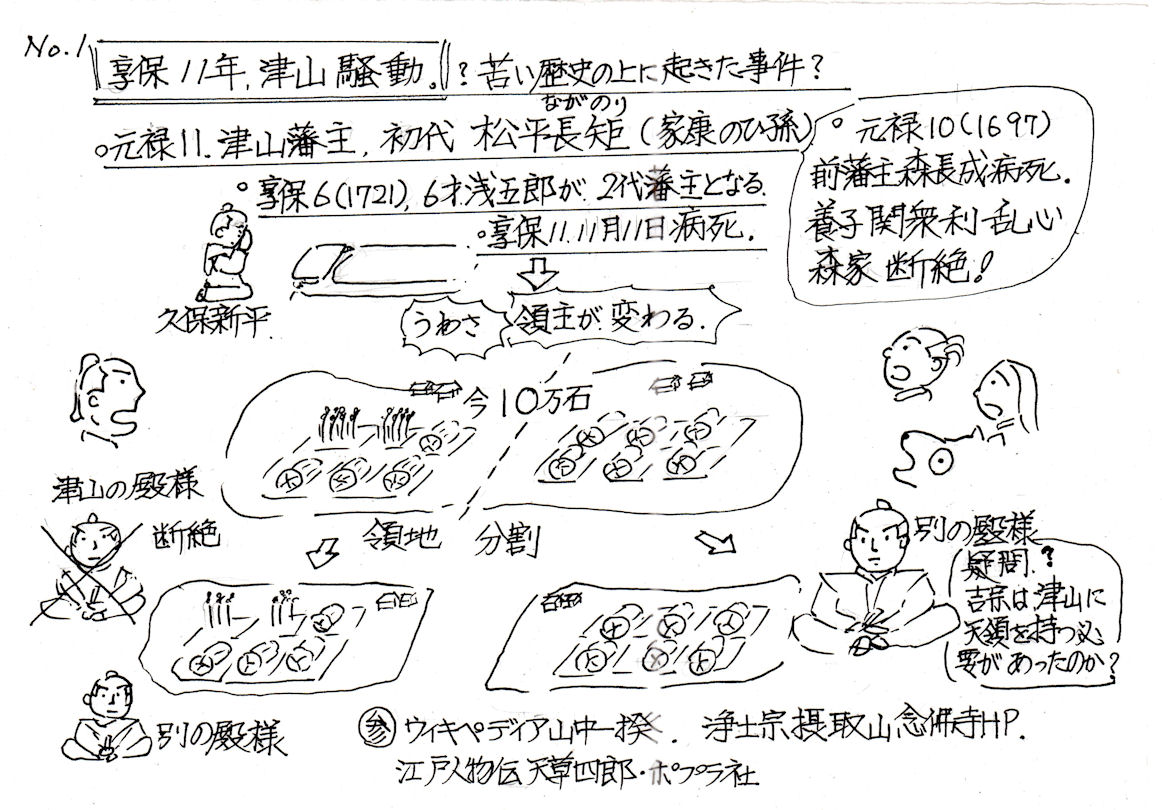 No.1
享保11年,津山騒動。?苦い歴史の上に起きた事件?
ながのり
○元禄11.津山藩主,初代 松平長矩(家康のひ孫)
○享保6(1721),6才浅五郎が2代藩主となる.
○享保11.11月11日病死.
○元禄10(1697)
前藩主森長成病死.
養子関衆利乱心
森家断絶!
久保新平
うわさ
領主が変わる.
今10万石
津山の殿様
断絶
領地 分割
別の殿様
疑問.?
吉宗は津山に
天領を持つ必
要があったのか?
別の殿様
参 ウィキペディア山中一揆. 浄土宗摂取山念佛寺HP.
江戸人物伝天草四郎・ポプラ社